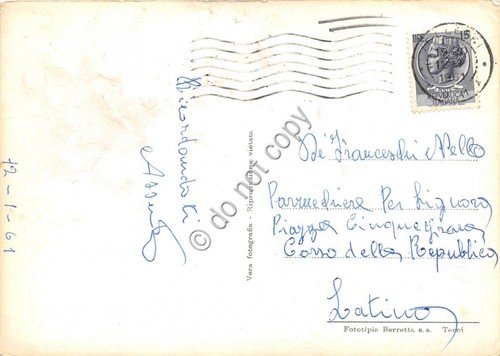 12-1-61
Ricordandoti
Assunta
do not copy
Vera fotografia - Riproduzione vietata
15
De Franceschi Nello
Parrucchiere Per Signora
Piazza Cinquegrana
Corso della Repubblica
Latina
Fototipia Berretta s.a. Terni